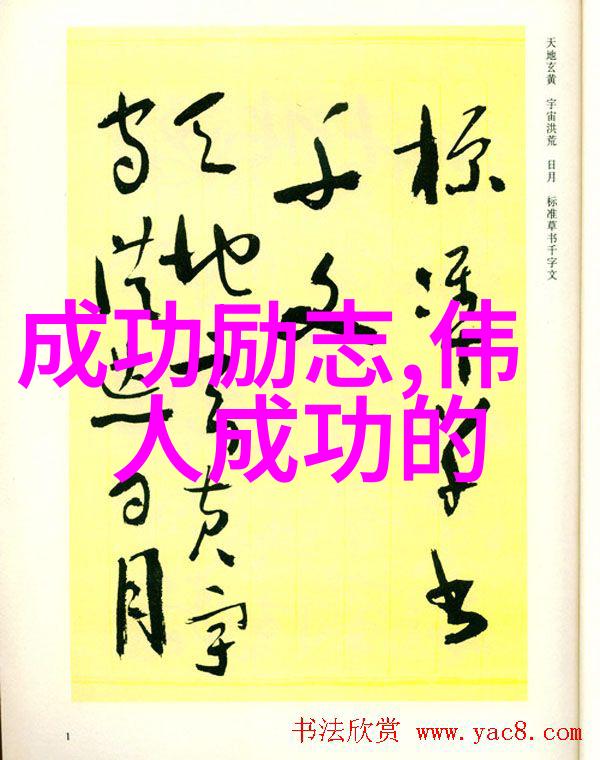 天地玄黄 宇宙洪荒 日月 标准草书千字文
標準草書
千文
天地玄黄宇
宙洪荒日月
成功励志,伟
人成功的
1
书法欣赏 www.yac8.com